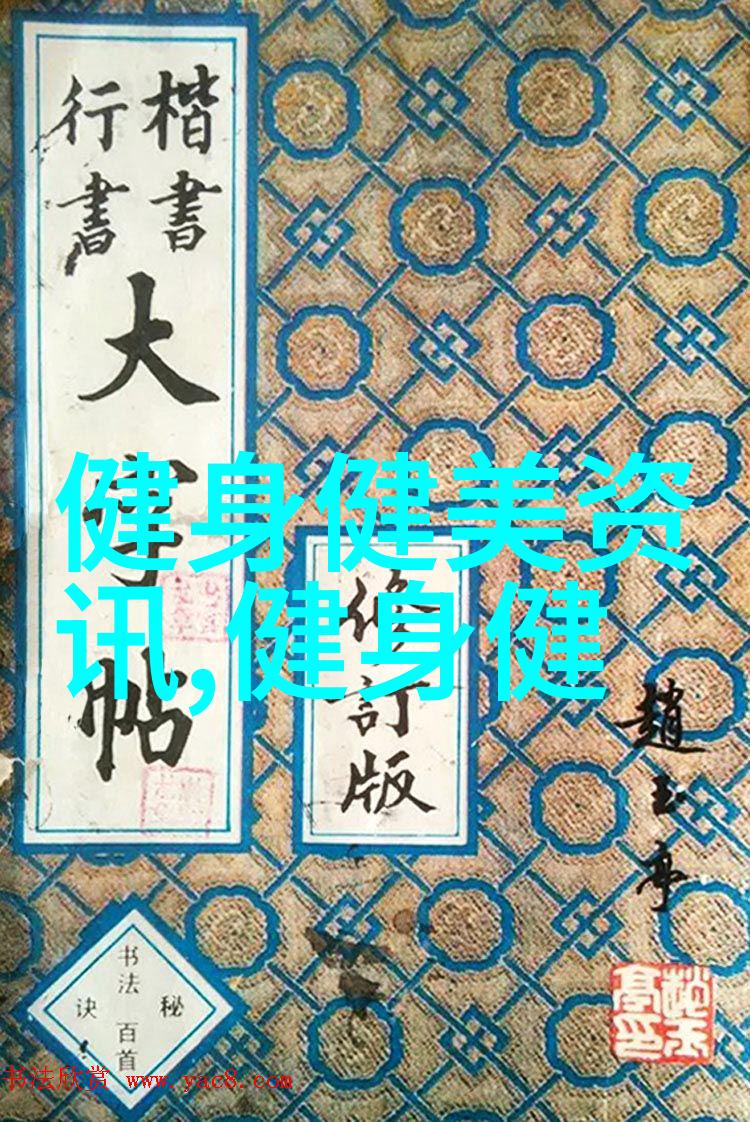 楷書
行書
大字帖
修訂版
健身健美资
讯,健身健
趙玉亭
书法百首
秘诀
书法欣赏 www.yac8.com